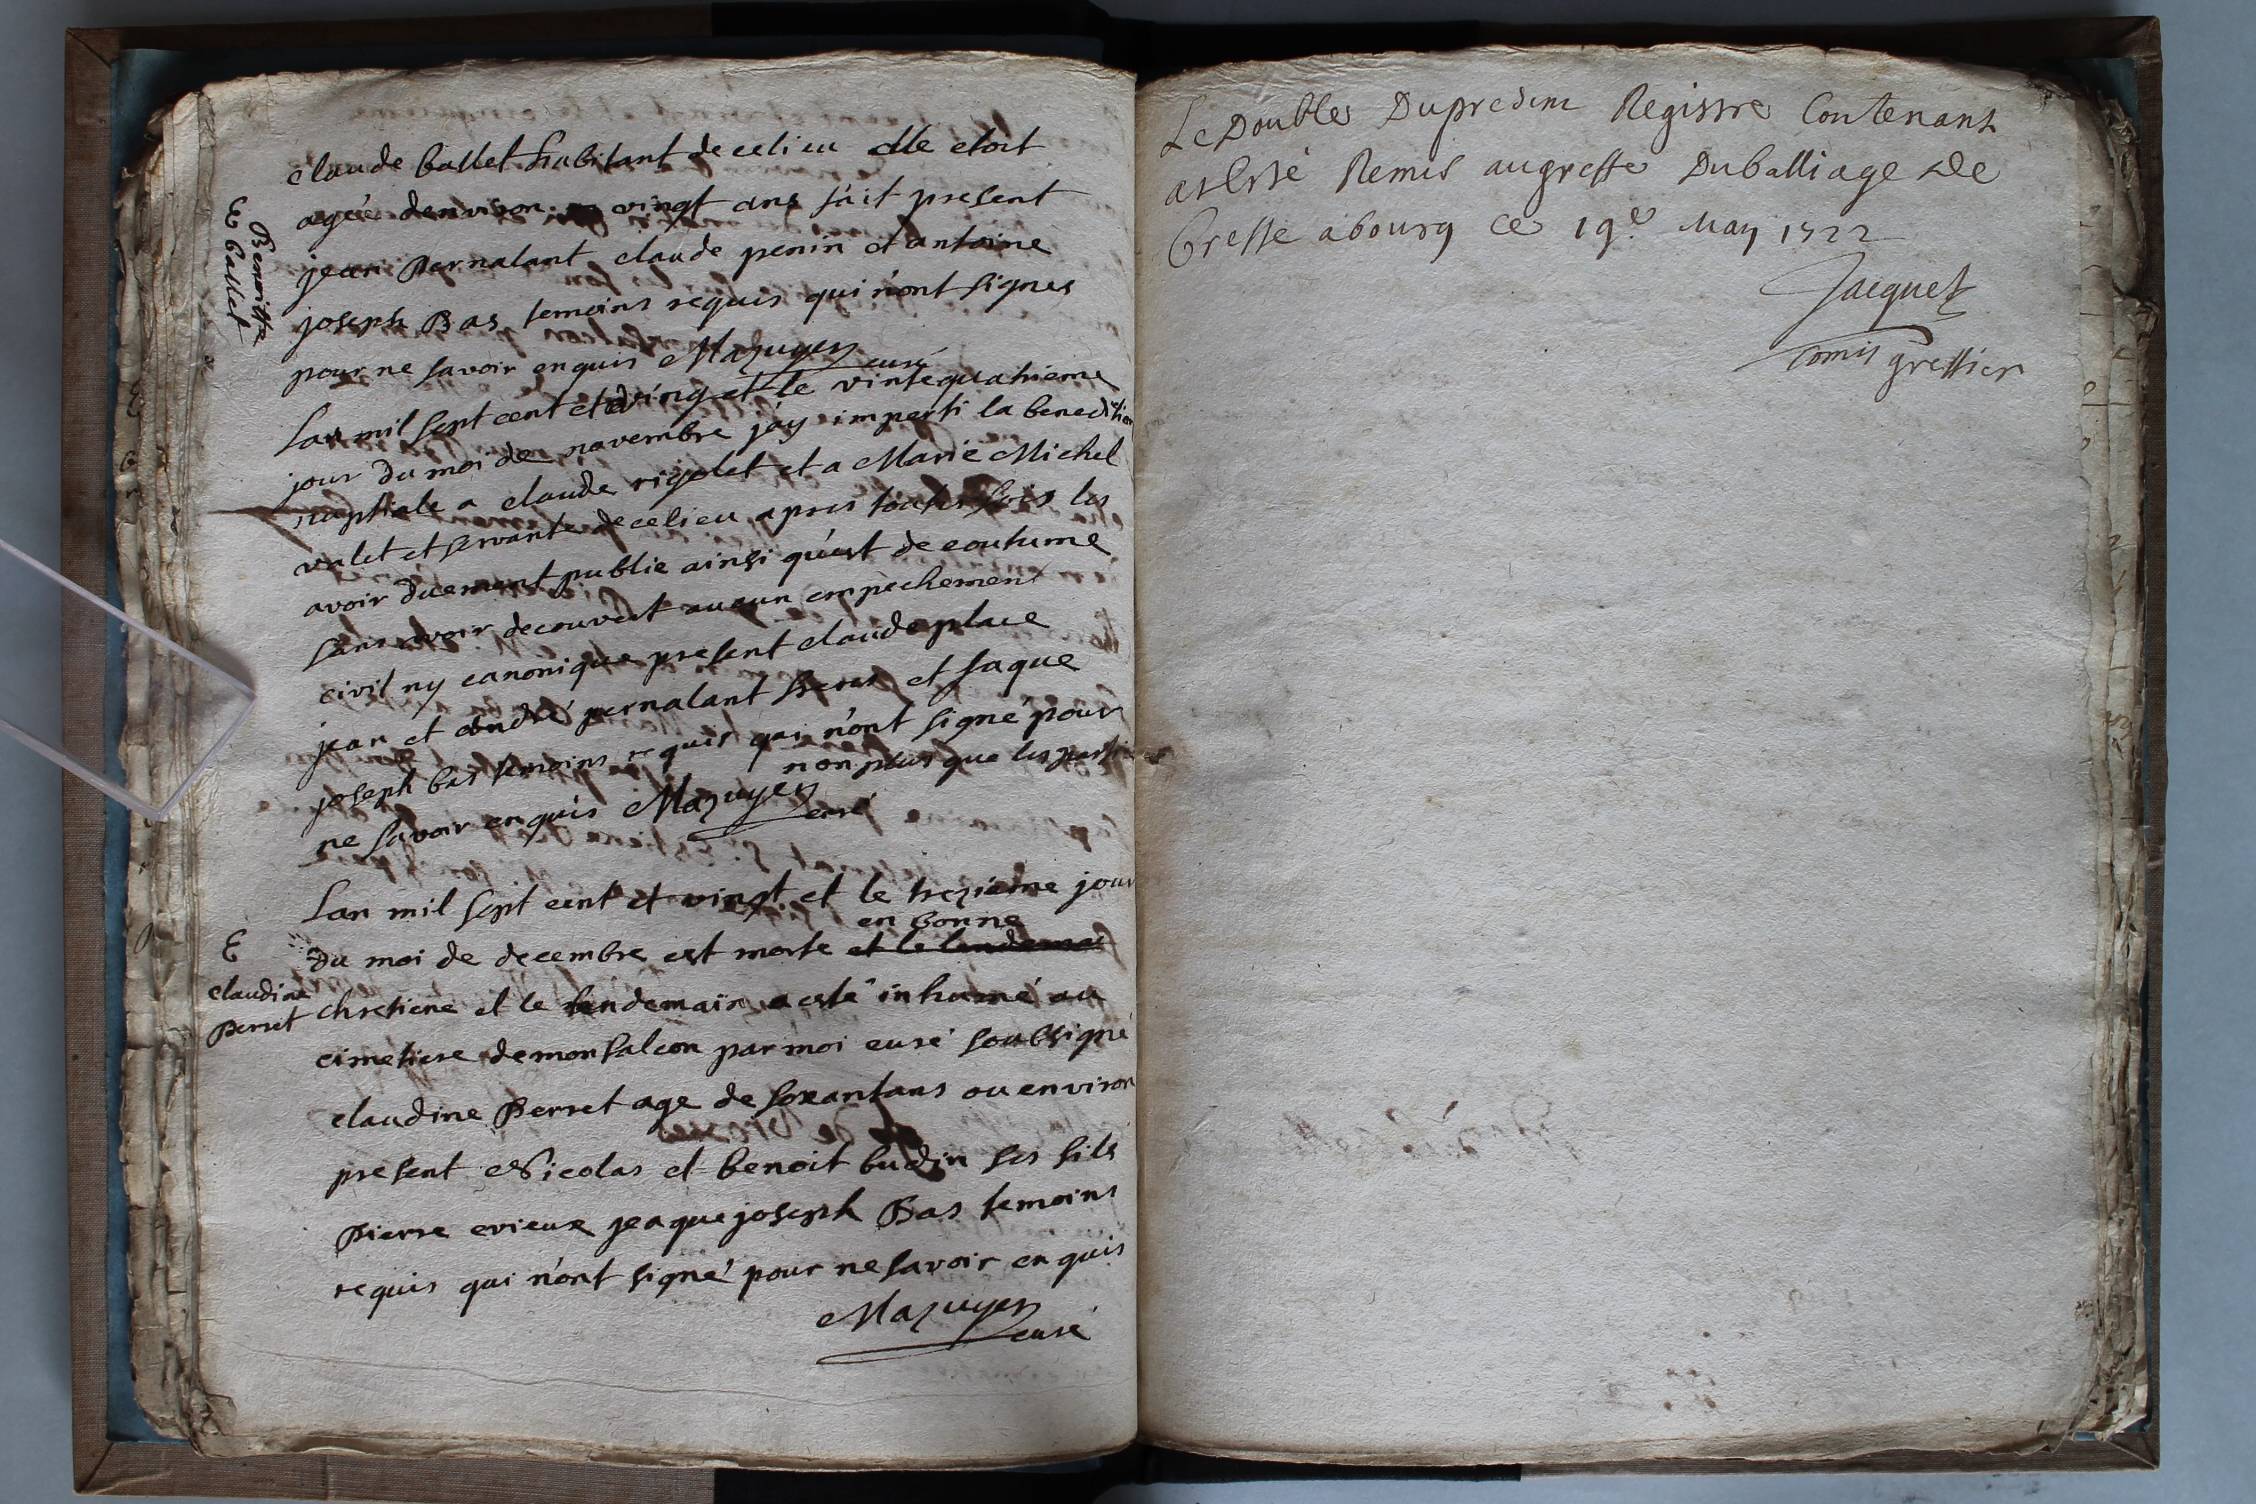 claude ballet habitant de ce lieu elle etoit
agée denviron vingt ans fait present
jean Pernalant claude penin et antoine
joseph Bas temoins requis qui n'ont signes
pour ne savoir enquis Mazuyer curé
E Benoitte
ballet
Lan mil sept cent et ving et le vintequatrieme
jour du moi de novembre jay imparti la benediction
nuptiale a claude rigolet et a Marie Michel
valet et servante de ce lieu apres toutes fois les
avoir duement publie ainsi qu'est de coutume
sans avoir decouvert aucun empechement
civil ny canonique present claude place
jean et andré pernalant freres et jaque
joseph bas temoins requis qui n'ont signé pour
non plus que les parties
ne savoir enquis Mazuyer curé
Lan mil sept cent et vingt et le trezieme jour
en bonne
du moi de decembre est morte et le lendemai
E
claudine
Perret
chretiene et le lendemain a esté inhumé au
cimetiere de monfalcon par moi curé soubsigné
claudine Perret age de soxantans ou environ
present Nicolas et benoit budin ses fils
Pierre evieux jeaque joseph Bas temoins
requis qui n'ont signé pour ne savoir enquis
Mazuyer curé
Le Double Du predent Registre Contenant
a esté Remis au greffe Du balliage De
bresse a bourg ce 19e May 1722
Jacquet
Comis greffier